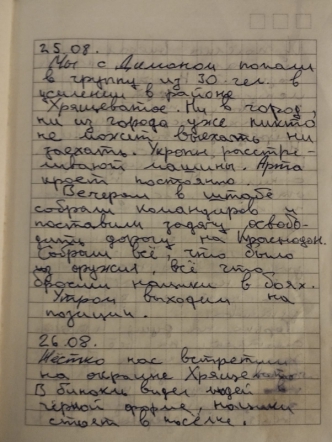 25.08.
Мы с Димоном попали
в группу из 30 чел. в
усилении в районе
Хрящеватое. Ни в город,
ни из города уже никто
не может выехать ни
заехать. Укропы расстре-
ливают машины. Арта
кроет постоянно.
Вечером в штабе
собрали командиров и
поставили задачу освобо-
дить дорогу на Краснодон.
Собрали всё, что было
из оружия, всё что
бросили нацики в боях.
Утром выходим на
позиции.
26.08.
Жёстко нас встретили
на окраине Хрящеватого
В бинокль видел людей в
чёрной форме, нацики
стоят в посёлке.